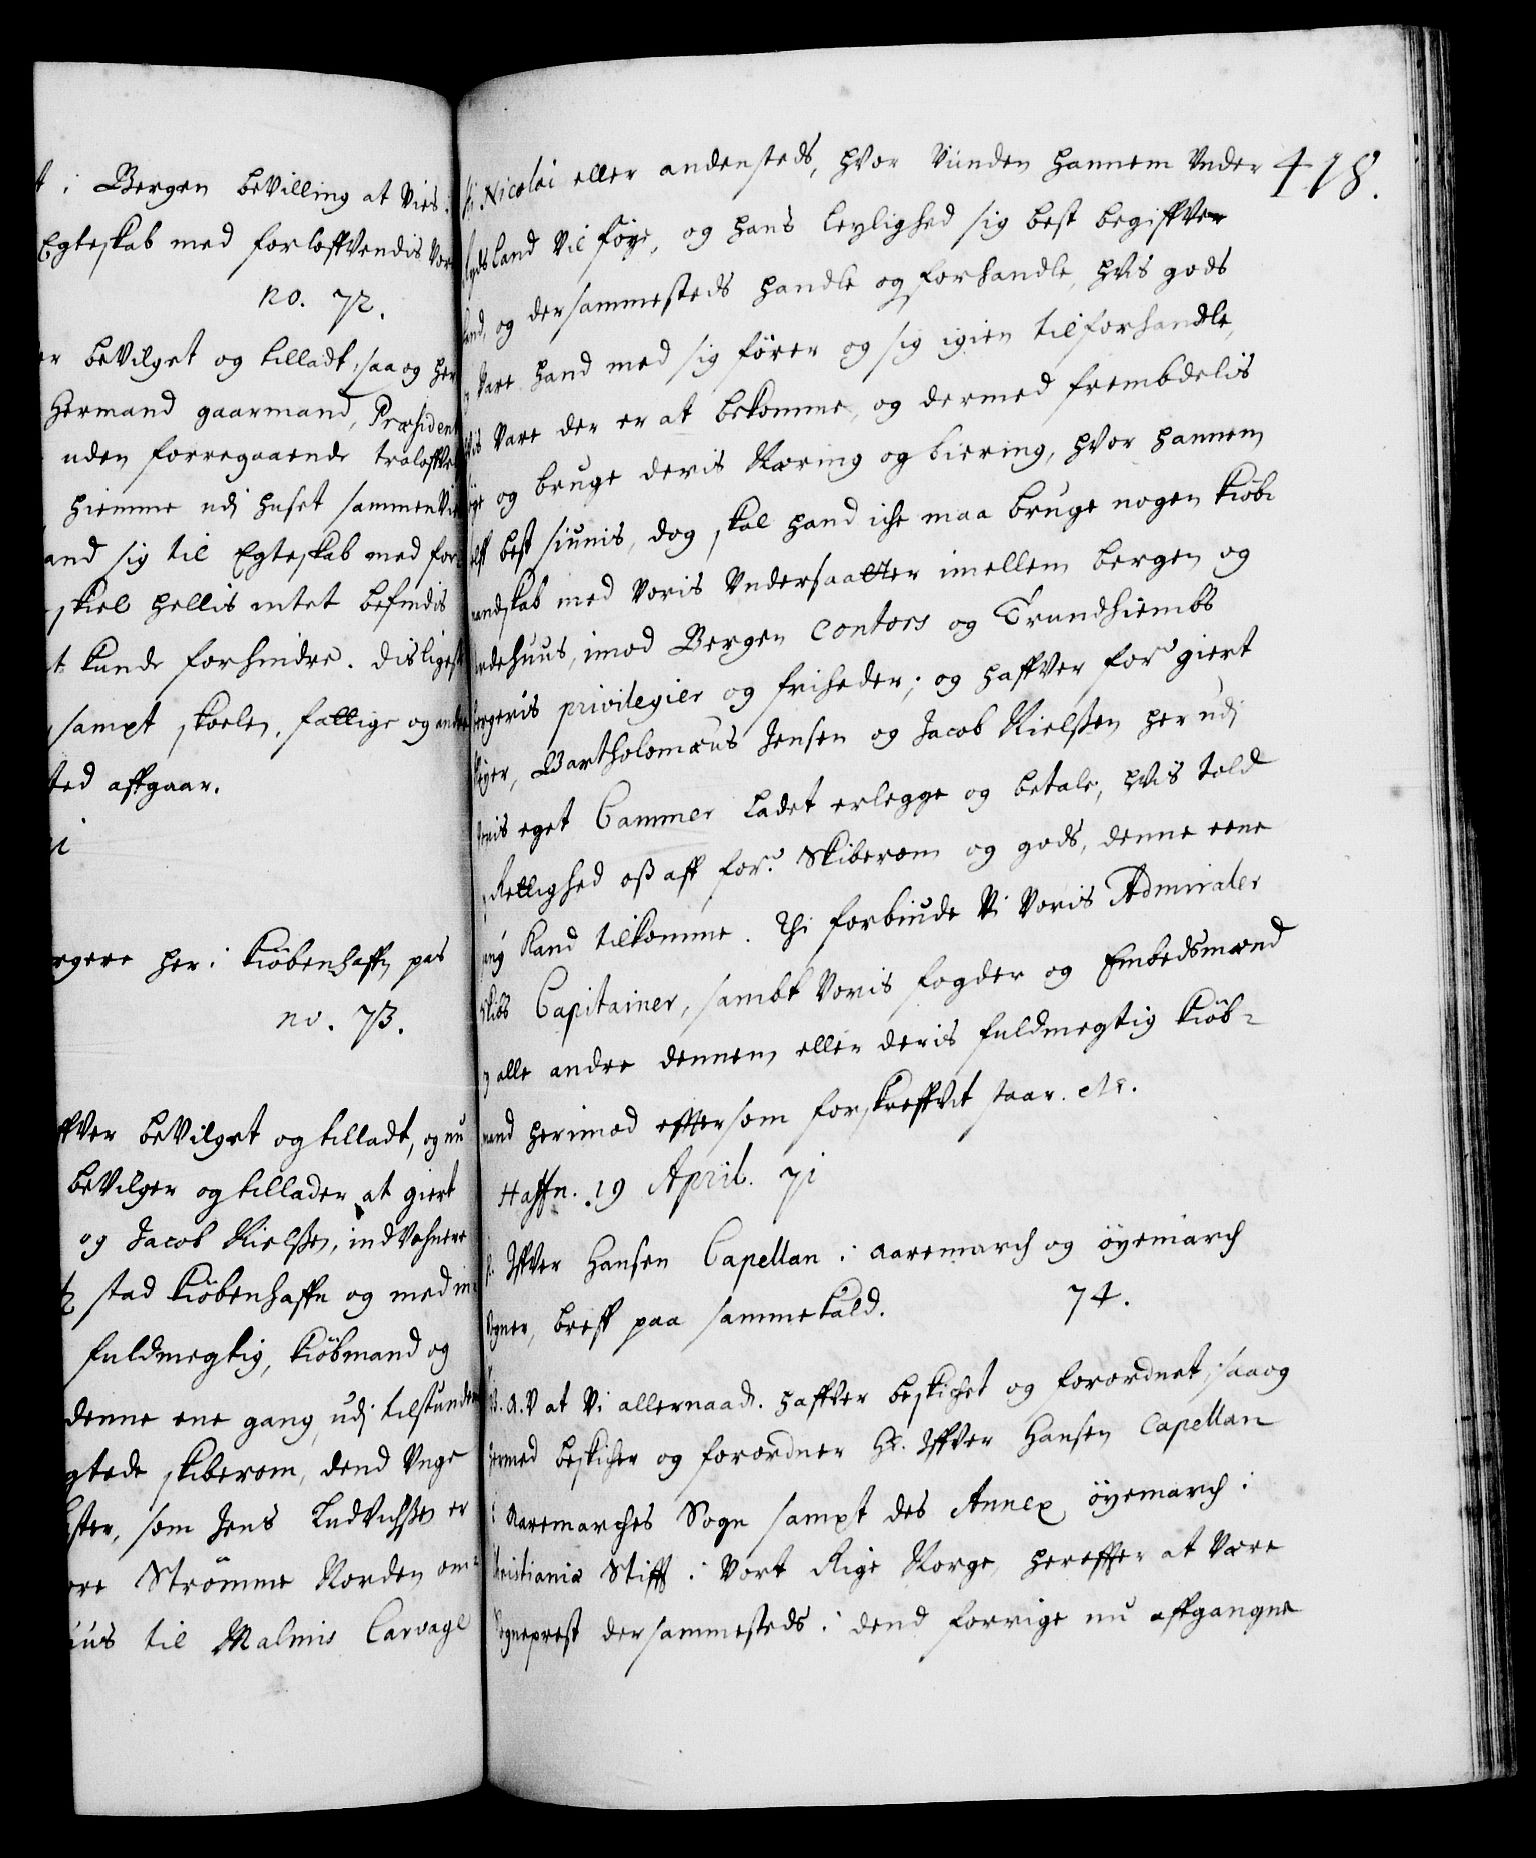 i Bergen beVilling at Vies i
Egteskab med forloffVendis Vor
no. 72.
er beVilget og tilladt, saa og her
Hermand gaarmand, Præsident
uden forregaaende troloffVel
hiemme udj huset sammenVi
and sig til Egteskab med for
skiel hellis intet befindis
t kunde forhindre. Disligest
sampt skolen, fattige og andre
sted affgaar.
rgere her i Kiöbenhaffn pas
no. 73.
ffVer beVilget og tilladt, og nu
beVilger og tillader at giert
og Jacob Nielssen, indVohnere
stad Kiöbenhaffn og med in
fuldmegtig, Kiöbmand og
denne ene gang, udj tilstunden
gtede skiberom, dend Unge
ster, som Jens LudVichssen er
ore Strömme Norden om-
uus til Malmis Carvage
418.
Nicolai eller andensteds, hVor Vinden hannem Under
Land Vil föye, og hans leylighed sig best begiffVer
and, og dersammesteds handle og forhandle, hVis gods
Vare hand med sig förer og sig igien tilforhandle,
Vis Vare der er at bekomme, og dermed frembdelis
og bruge deris Næring og biering, hVor hannem
best siunis, dog skal hand iche maa bruge nogen Kiöb-
mandskab med Voris Undersaatter imellem bergen og
rdehuus, imod Bergen Contors og Trundhiembs
orgeris privilegier og friheder; og haffVer for.e giert
Bartholomæus Jensen og Jacob Nielssen her udj
oris eget Cammer Ladet erlegge og betale, hVis told
Rettighed oss aff for.e Skiberom og gods, denne eene
gang Kand tilkomme. Thi forbiude Vi Voris Admiraler
skibs Capitainer, sambt Voris fogder og Embedsmænd
og alle andre dennem eller deris fuldmegtig Kiöb-
mand herimod eftersom forskreffVit staar. etc.
Haffn. 19 April. 71
IffVer Hansen Capellan i aaremarch og öyemarch
Sogner, breff paa samme kald. 74.
A. V at Vi allernaad. haffVer beskichet og forordnet, saa og
hermed beskicher og forordner Hr. IffVer Hansen Capellan
i Aaremarches Sogn sampt des Annex, öyemarch i
Christianiæ Stifft i Vort Rige Norge, hereffter at Være
Sogneprest dersammesteds i dend forrige nu affgangne